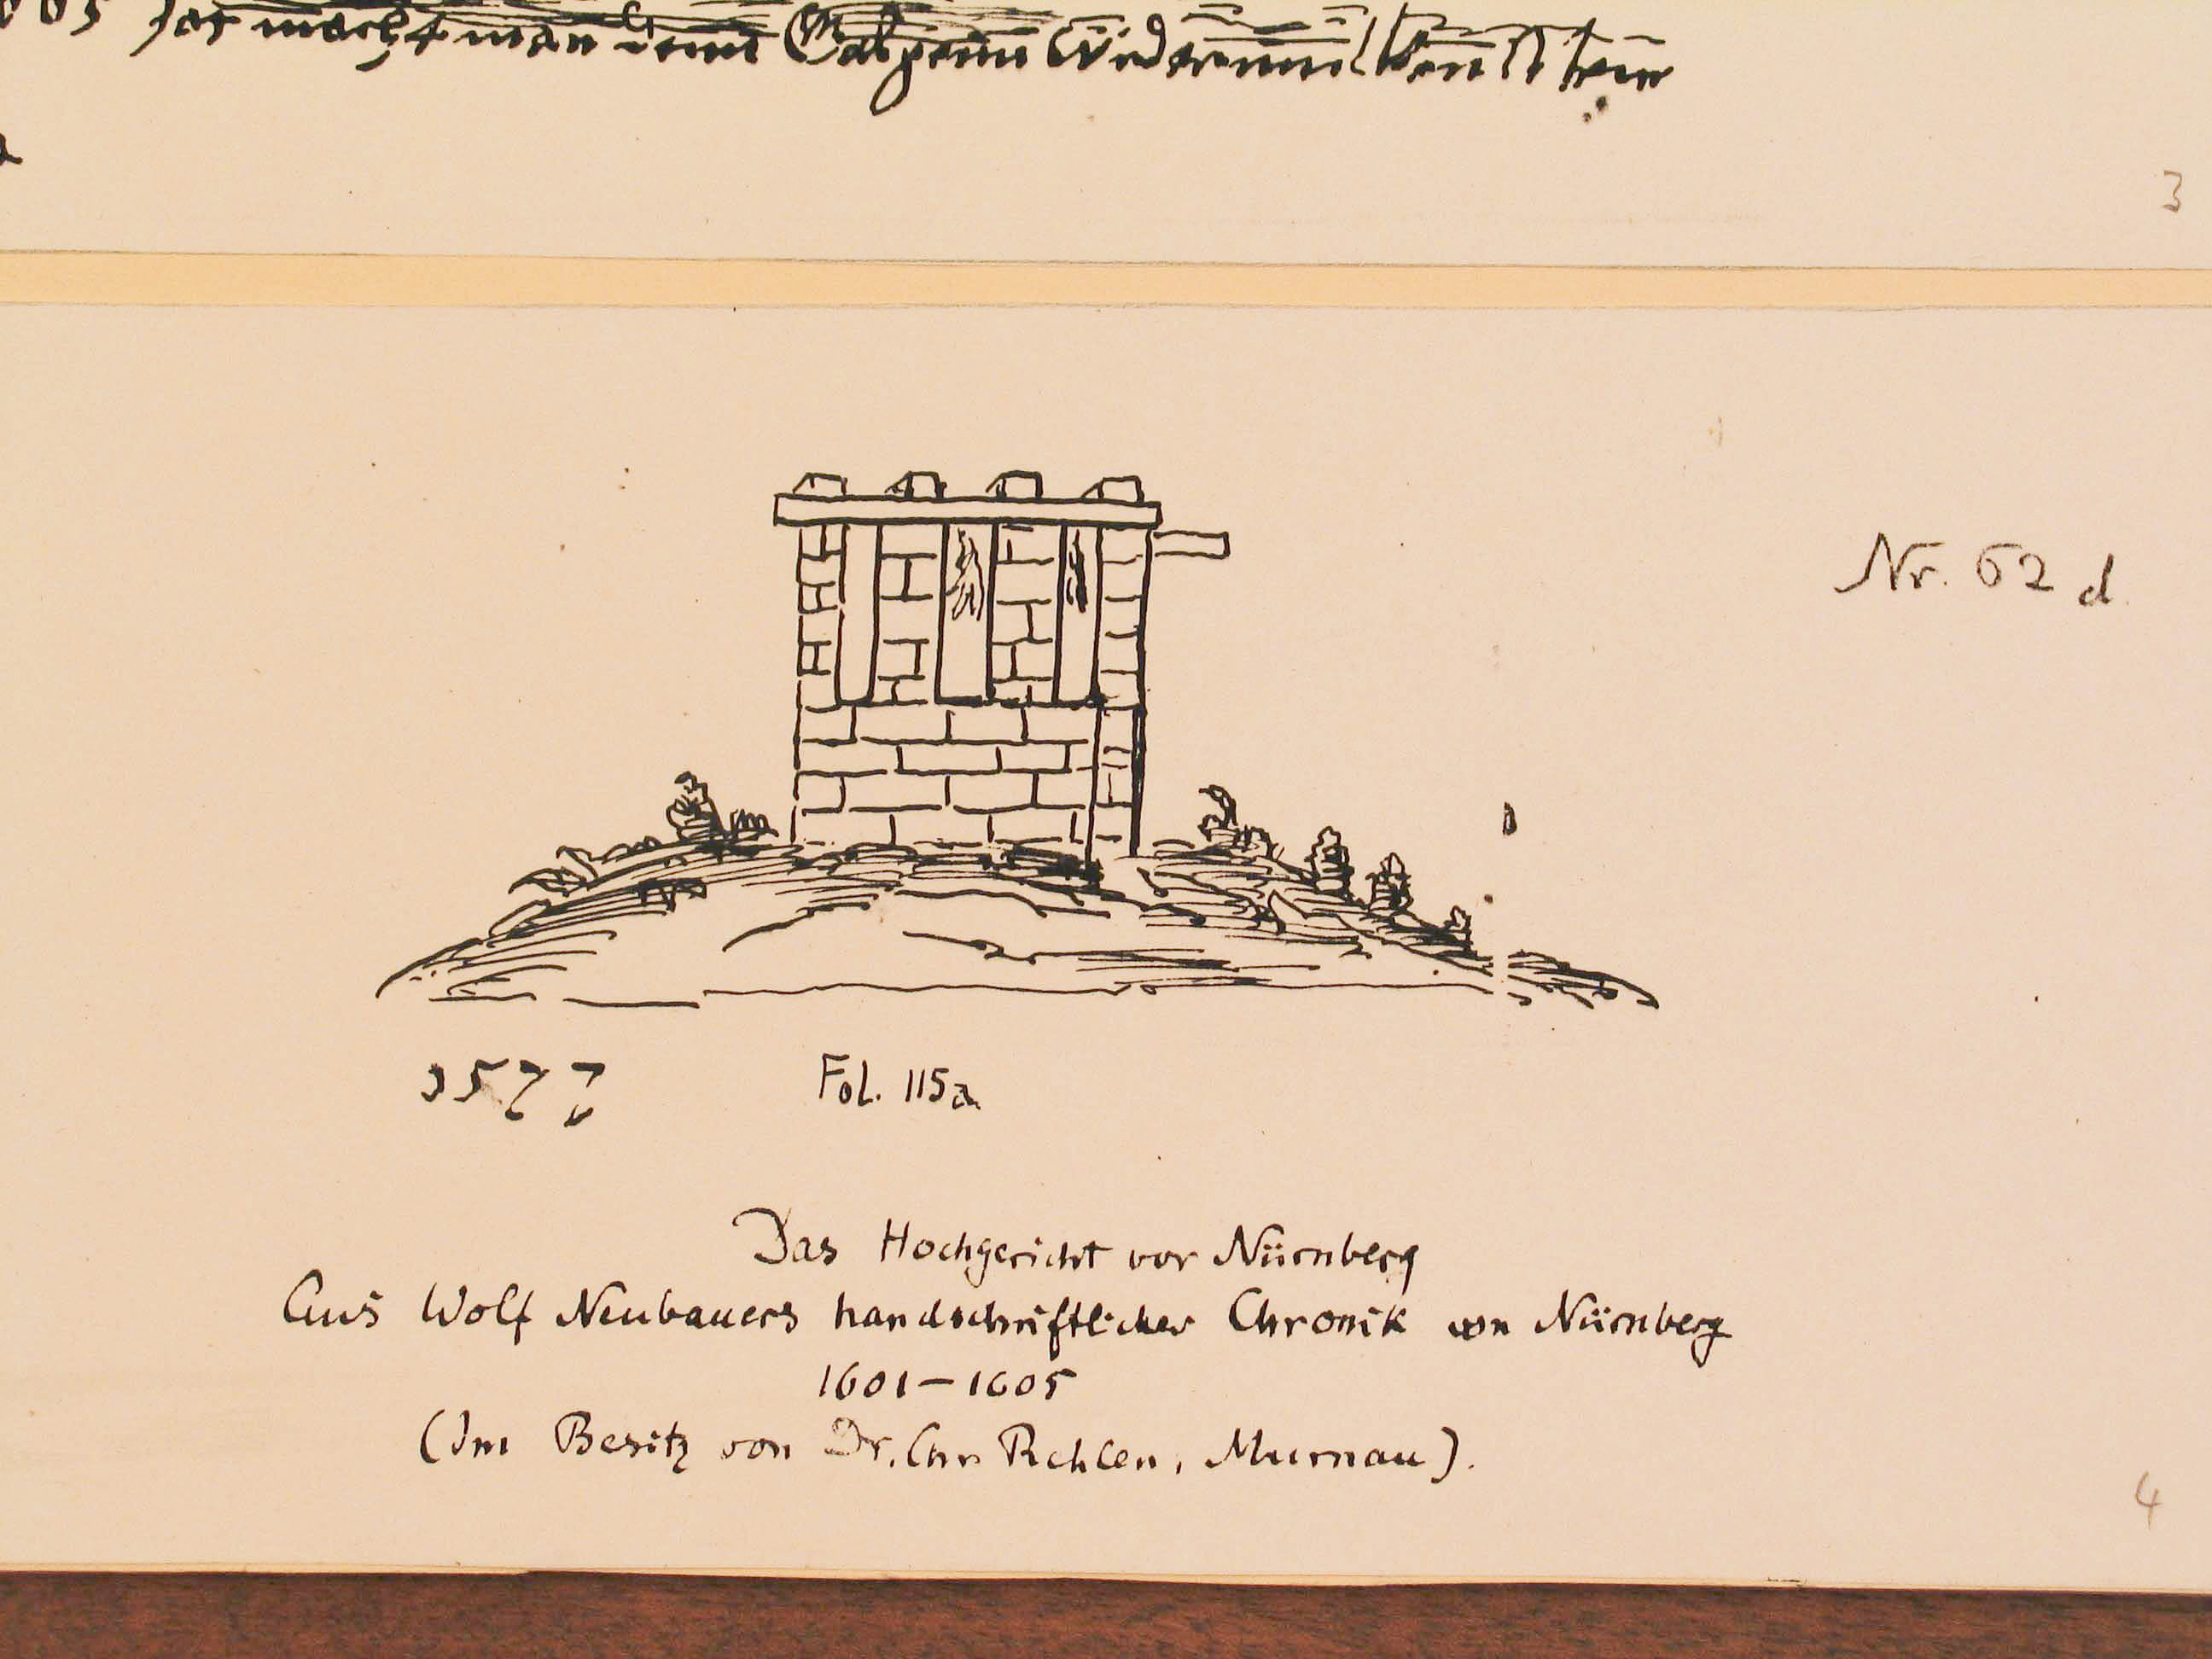 Jar macht man Galgenn Widerumb von
3
Nr. 62 d.
1577
Fol. 115a
Das Hochgericht vor Nürnberg
Aus Wolf Neubauers handschriftlicher Chronik von Nürnberg
1601–1605
(Im Besitz von Dr. Chr Rehlen, Murnau).
4